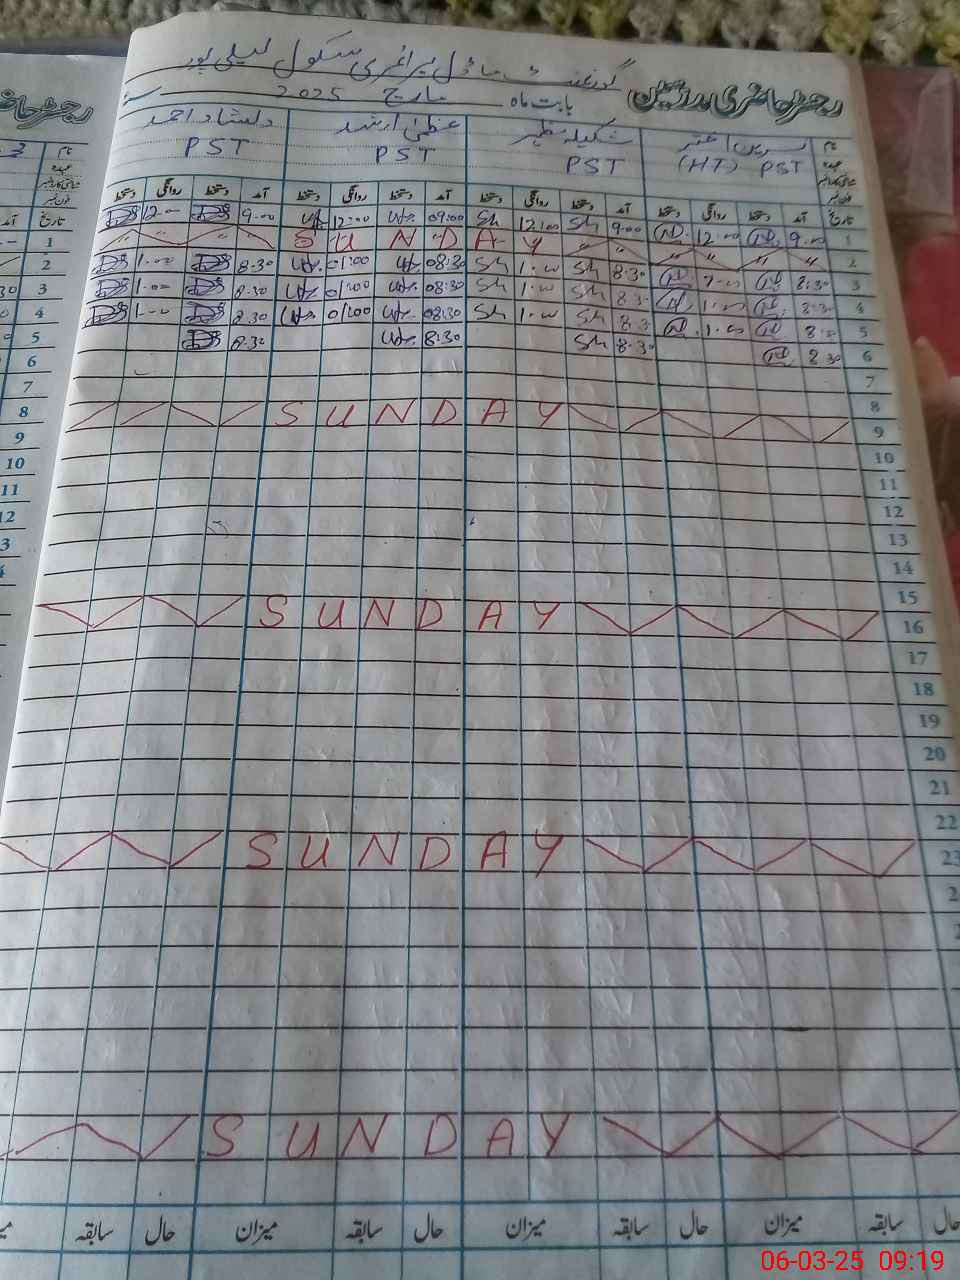 رجسٹر حاضری مدرسین گورنمنٹ ماڈل پرائمری سکول لیلی پور
بابت ماہ مارچ 2025
نام نسرین اختر شکیلہ مظہر عظمیٰ ارشد دلشاد احمد
عہدہ PST (HT) PST PST PST
شناختی کارڈ نمبر
فون نمبر
تاریخ آمد دستخط روانگی دستخط آمد دستخط روانگی دستخط آمد دستخط روانگی دستخط آمد دستخط روانگی دستخط
1 9.00 12.00 9.00 Sh 12:00 Sh 09:00 12:00 9.00 12.00
2 SUNDAY
3 8:30 8.30 Sh 1.00 Sh 08:30 01:00 8.30 1.00
4 8:30 1.00 8.30 Sh 1.00 Sh 08:30 01:00 8.30 1.00
5 8:30 1.00 8.30 Sh 1.00 Sh 08:30 01:00 8.30 1.00
6 8 30 8.30 Sh 8:30 8.30
7
8
9 SUNDAY
10
11
12
13
14
15
16 SUNDAY
17
18
19
20
21
22
23 SUNDAY
2
2
SUNDAY
حال سابقہ میزان حال سابقہ میزان حال سابقہ میزان حال سابقہ
رجسٹر حاضر
1
2
3
4
5
6
7
8
9
10
11
12
06-03-25 09:19